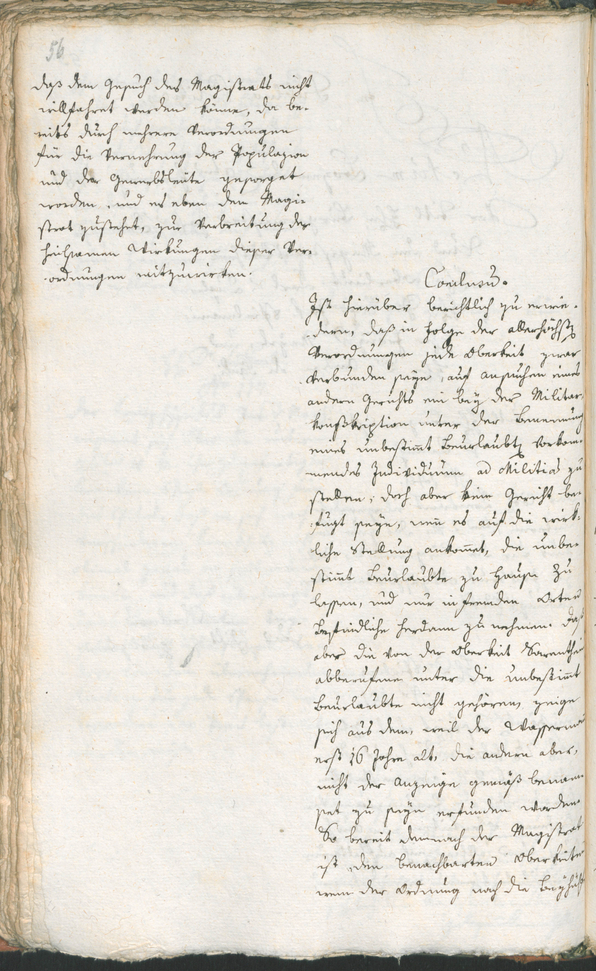 56
daß dem Gesuch des Magistrats nicht
willfahret werden könne, da be-
reits durch mehrere Verordnungen
für die Vermehrung der Populazion
und der Gewerbsleute gesorget
worden, und es eben dem Magi-
strat zustehet, zur Verbreitung der
heilsamen Wirkungen dieser Ver-
ordnungen mitzuwirken.
Conclusum.
Ist hierüber berichtlich zu erwie-
dern, daß in Folge der allerhöchsten
Verordnungen jede Oberkeit zwar
verbunden seye, auf Ansuchen eines
andern Gerichts ein bey der Militar
Konskription unter der Benennung
eines unbestimmt Beurlaubten vorkom-
mendes Individuum ad Militiam zu
stellen; doch aber kein Gericht be-
fugt seye, wenn es auf die wirk-
liche Stellung ankommet, die unbe-
stimmt Beurlaubte zu Hause zu
lassen, und nur in fremden Orten
Befindliche herdann zu nehmen. Daß
aber die von der Oberkeit Sarenthein
abberufene unter die unbestimmt
Beurlaubte nicht gehören, zeige
sich aus dem, weil der Wasserma
erst 16 Jahre alt, die andern aber,
nicht der Anzeige gemäß
zu seyn erfunden worden.
So bereit demnach der Magistrat
ist, den benachbarten Oberkeiten
wenn der Ordnung nach die Beyhülf